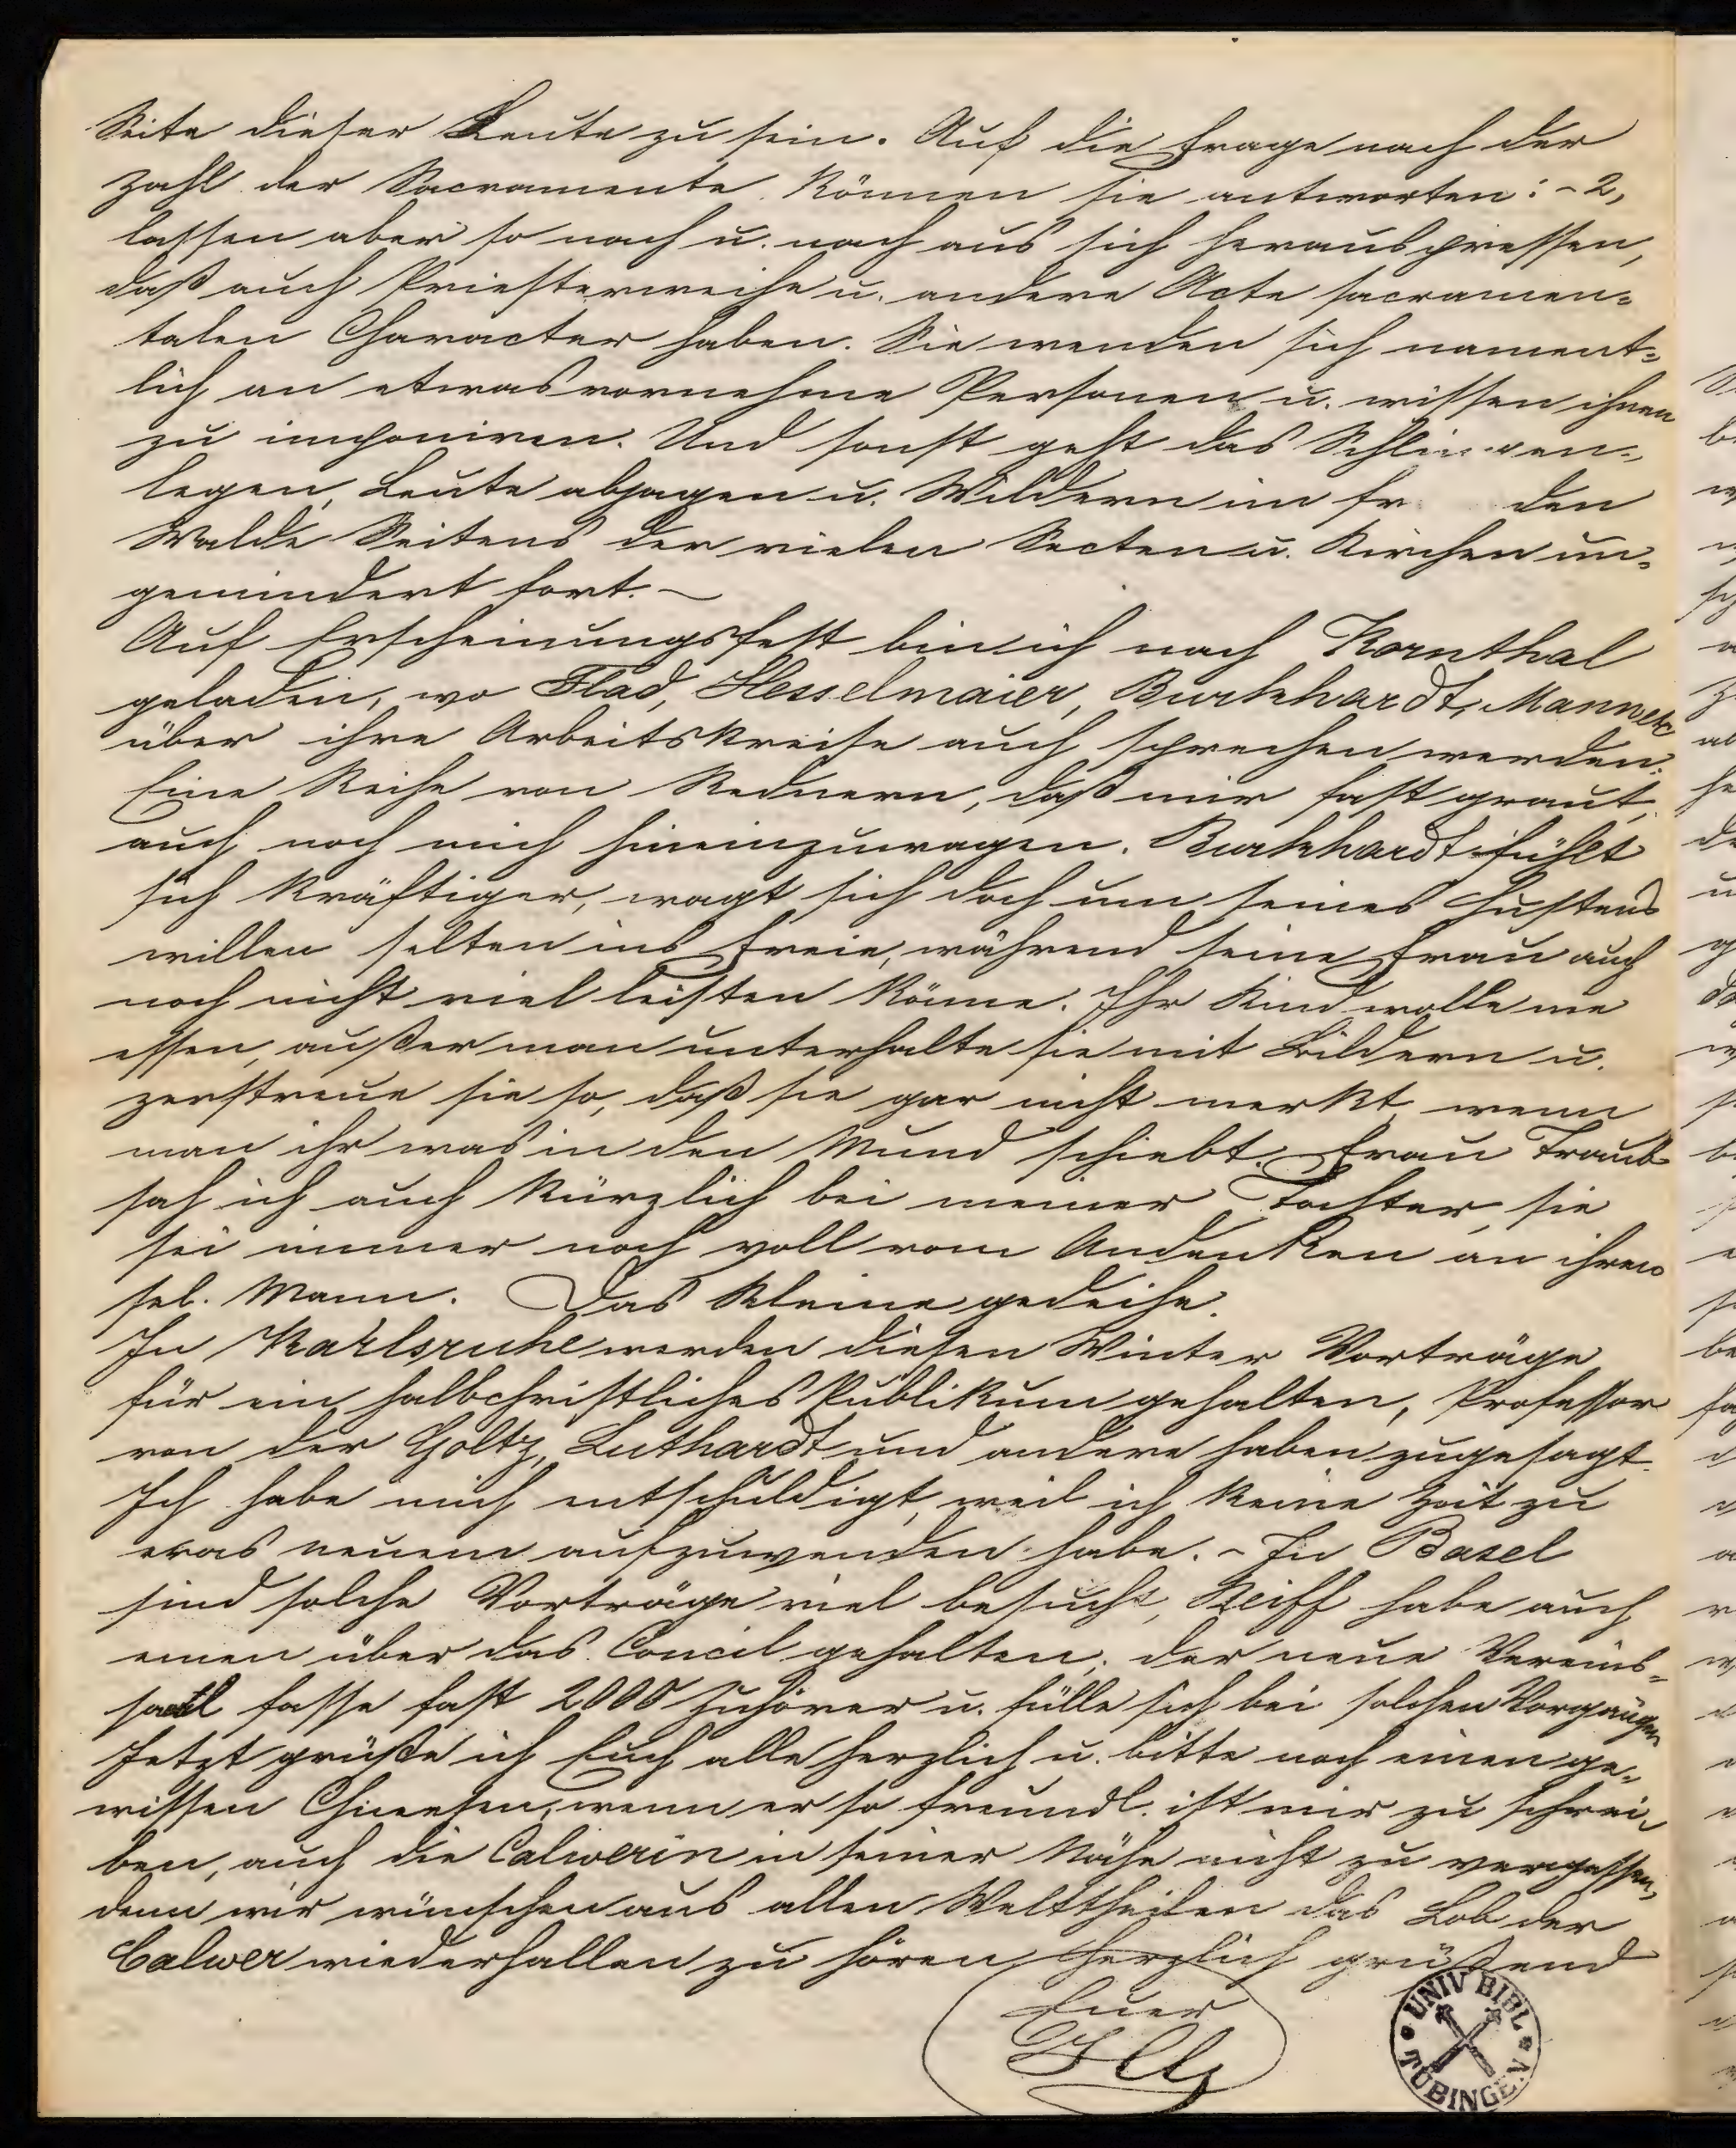 Seite dieser Leute zu sein. Auf die Frage nach der
Zahl der Sacramente können sie antworten: - 2,
lassen aber so nach u. nach aus sich herauspressen,
daß auch Priesterweihe u. andere Acte sacramen=
talen Character haben. Sie wenden sich nament=
lich an etwas vornehme Personen u. wissen ihnen
zu imponiren. Und sonst geht das Schlingen=
legen, Leute abjagen u. Wildern im den
Walde Seitens der vielen Secten u. Kirchen un=
gemindert fort. -
Auf Erscheinungsfest bin ich nach Kornthal
geladen, wo Flad, Hesselmaier, Burkhardt,
über ihre Arbeitskreise auch sprechen werden.
Eine Reihe von Rednern, daß mir fast graut,
auch noch mich hineinzuwagen. Burkhardt fühlt
sich kräftiger, wagt sich doch um seines Hustens
willen selten ins Freie, während seine Frau auch
noch nicht viel leisten könne. Ihr Kind wolle nie
essen, außer man unterhalte sie mit Bildern u.
zerstreue sie so, daß sie gar nicht merkt, wenn
man ihr was in den Mund schiebt. Frau Traub
sah ich auch kürzlich bei meiner Tochter, sie
sei immer noch voll vom Andenken an ihren
sel. Mann. Das Kleine gedeihe.
In Karlsruhe werden diesen Winter Vorträge
für ein halbchristliches Publikum gehalten, Professor
von der Goltz, Luthardt und andere haben zugesagt.
Ich habe mich entschuldigt, weil ich keine Zeit zu
ewas neuem aufzuwenden habe. - In Basel
sind solche Vorträge viel besucht, Reiff habe auch
einen über das Concil gehalten; der neue Vereins=
saal fasse fast 2000 Zuhörer u. fülle sich bei solchen Vorgängen
Jetzt grüße ich Euch alle herzlich u. bitte noch einen ge=
wissen Chinesen, wenn er so freundl. ist mir zu schrei=
ben, auch die Calwerin in seiner Nähe nicht zu vergessen,
denn wir wünschen aus allen Welttheilen das Lob der
Calwer wiederhallen zu hören. Herzlich grüßend
Euer
UNIV BIBL TÜBINGEN